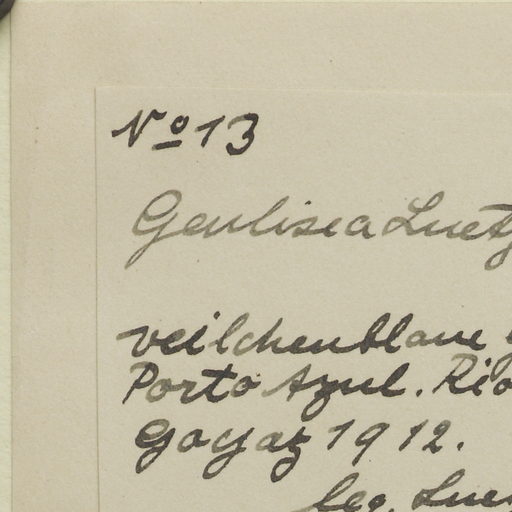 No 13
Genlisea Luetz
veilchenblaue
Porto Azul. Rio
Goyaz 1912.
Leo. Luetz